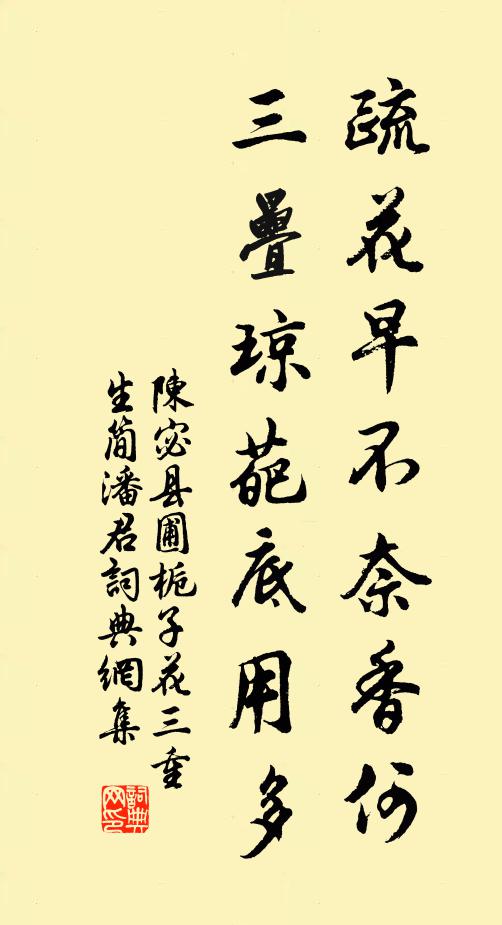 疏花早不奈香何
三疊琼葩底用多
陳宓县圃栀子花三重
生簡潘君詞典網集
詞典网印